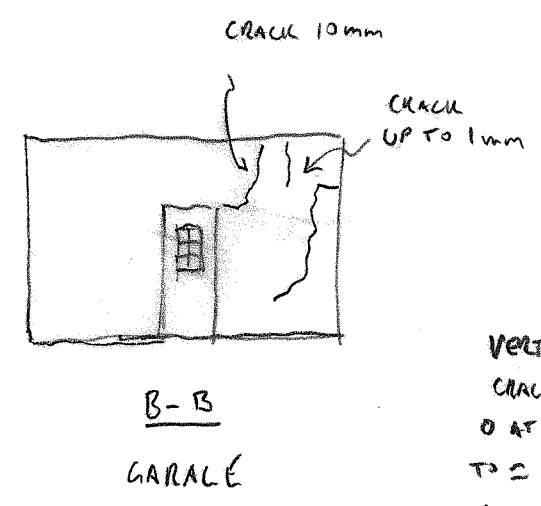 CRACK 10mm
CRACK
UP TO 1mm
B-B
GARAGE
VERT
CRAC
0 AT
TO =